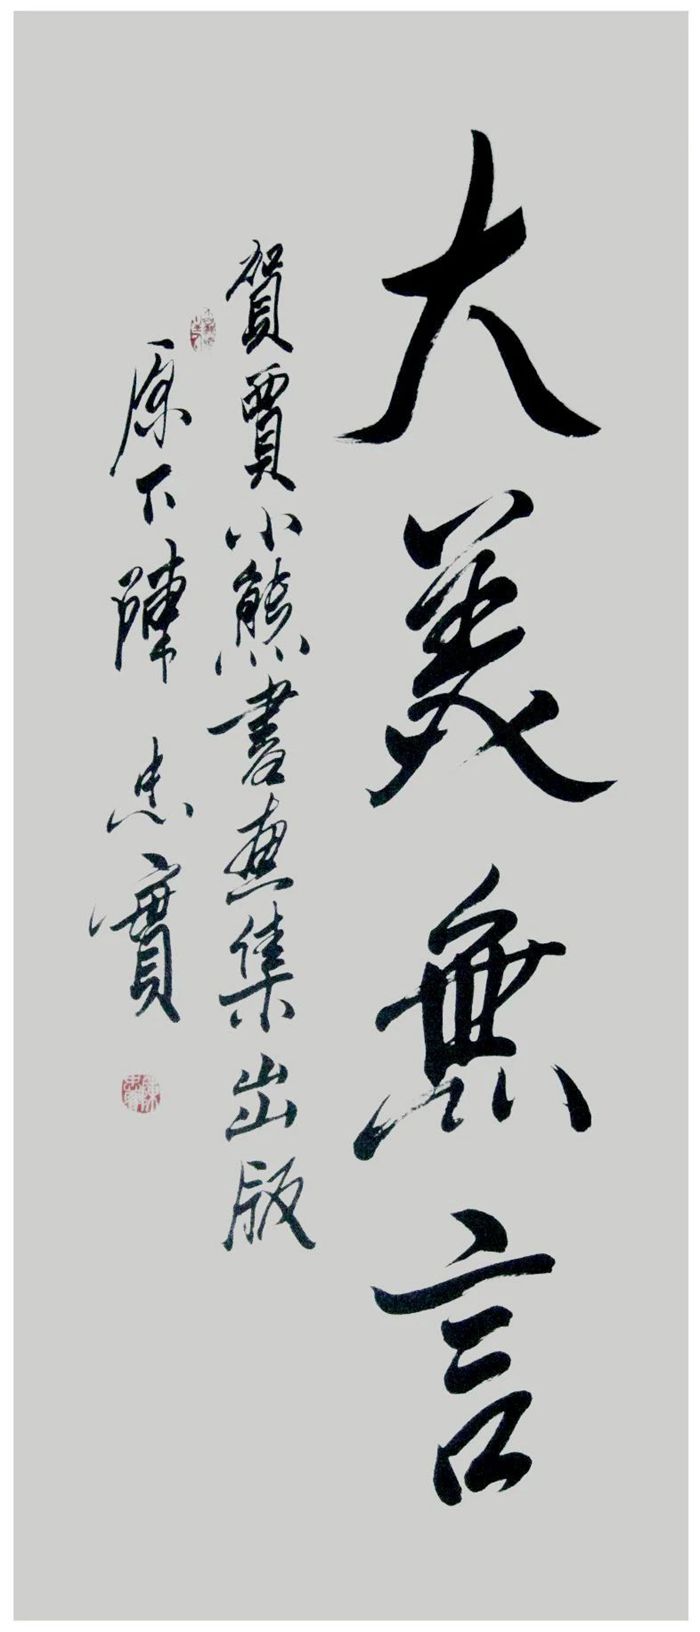 大美無言
賀賈小熊書畫集出版
原下陳忠實